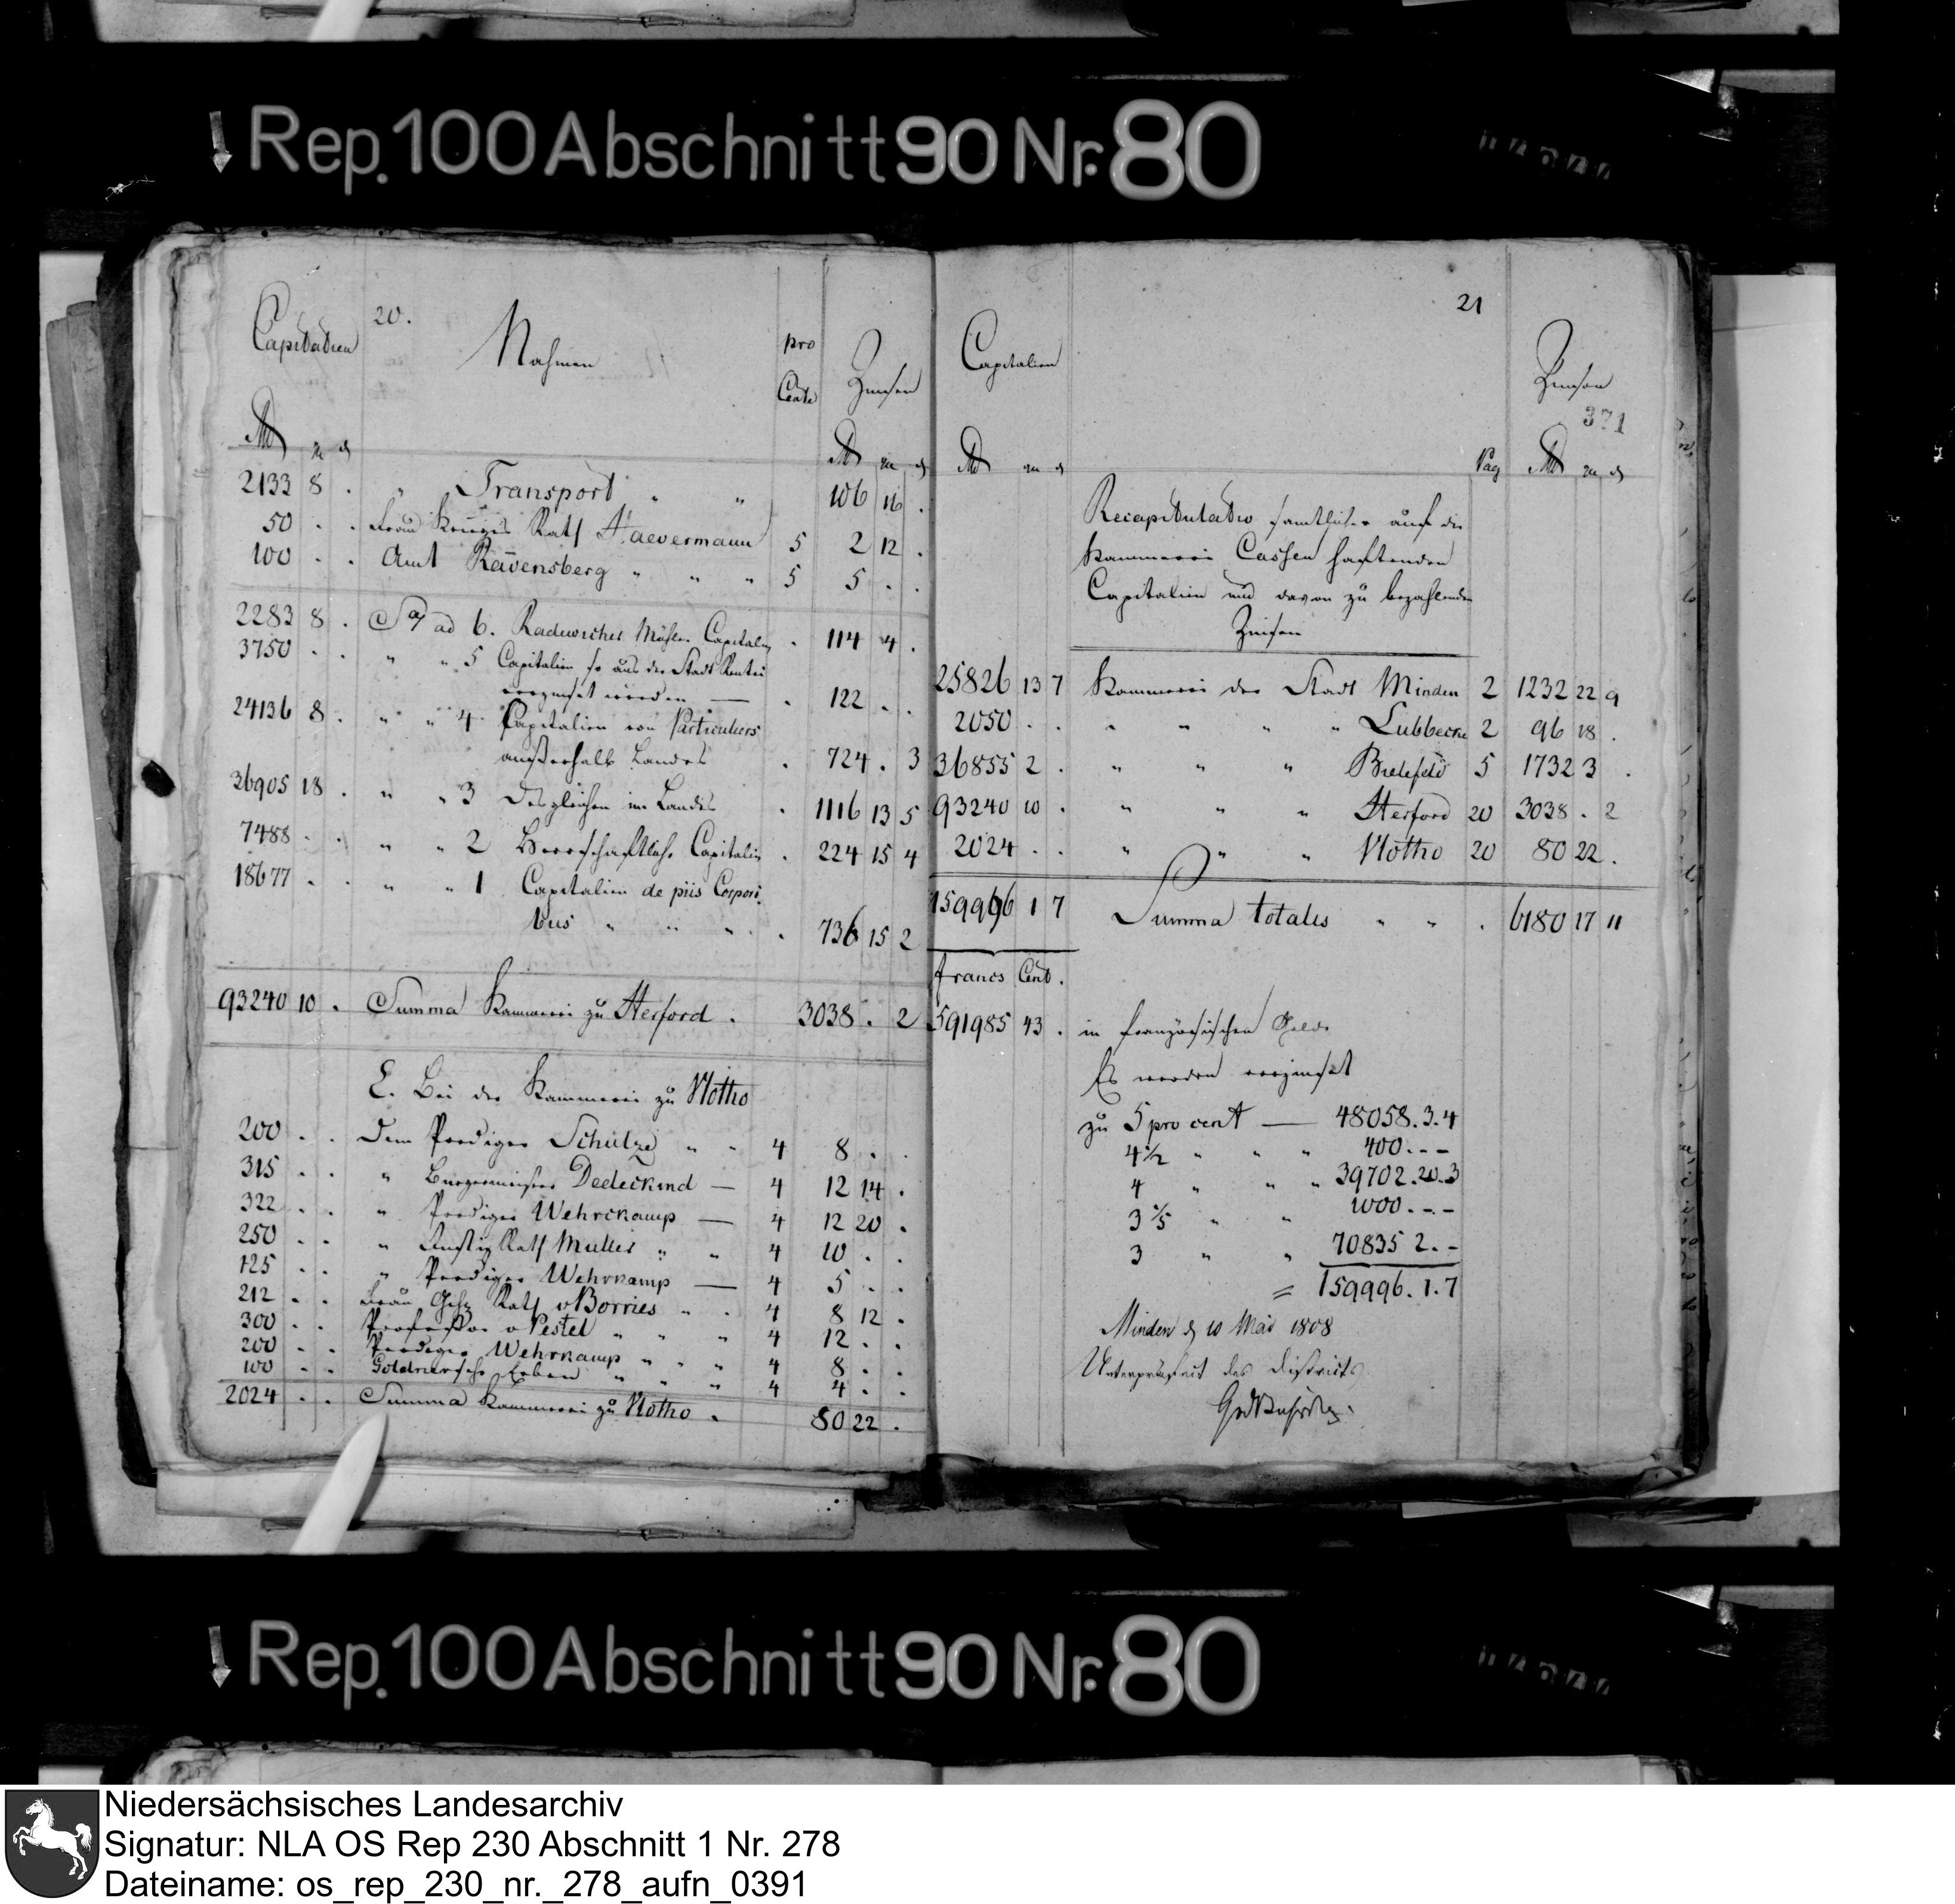 Rep. 100 Abschnitt 90 Nr. 80
20.
Capitalien Nahmen pro Cento Zinsen
2133 8 . " Transport " " 106 16 .
50 . . Frau Krieges Rath Haevermann 5 2 12 .
100 . . Amt Ravensberg " " " 5 5 . .
2283 8 . ad 6. Radewicher Mühlen Capitalien . 114 4 .
3750 . . " " 5 Capitalien so aus der Stadt Rentei
verzinset werden — . 122 . .
24136 8 . " " 4 Capitalien von Particuliers
außerhalb Landes . 724 . 3
36905 18 . " " 3 Desgleichen im Lande . 1116 13 5
7488 . . " " 2 Herrschaftliche Capitalien . 224 15 4
18677 . . " " 1 Capitalien de piis Corpori
bus " " " . 736 15 2
93240 10 . Summa Kammerei zu Herford . 3038 . 2
E. Bei der Kammerei zu Vlotho
200 . . Dem Prediger Schultze " " 4 8 . .
315 . . " Burgermeister Dedeckind — 4 12 14 .
322 . . " Prediger Wehrckamp — 4 12 20 .
250 . . " Justiz Rath Muller " " 4 10 . .
125 . . " Prediger Wehrkamp — 4 5 . .
212 . . Frau Geh. Rath v Borries " . 4 8 12 .
300 . . Professor v Pestel " " " 4 12 . .
200 . . Prediger Wehrkamp " " " 4 8 . .
100 . . Erben " " " 4 4 . .
2024 . . Summa Kammerei zu Vlotho . 80 22 .
21
Capitalien Zinsen
371
Pag
Recapitulatio samtlicher auf die
Kammerei Cassen haftenden
Capitalien und davon zu bezahlenden
Zinsen
25826 13 7 Kammerei der Stadt Minden 2 1232 22 9
2050 . . " " " " Lubbecke 2 96 18 .
36855 2 . " " " Bielefeld 5 1732 3 .
93240 10 . " " " Herford 20 3038 . 2
2024 . . " " " Vlotho 20 80 22 .
159996 1 7 Summa totalis " " . 6180 17 11
francs Cent.
591985 43 . in französischen Gelde
Es werden verzinset
zu 5 pro cent — 48058.3.4
4 1/2 " " " 400.--
4 " " " 39702.20.3
3 1/5 " " 1000.--
3 " " 70835 2.-
= 159996.1.7
Minden d 10 Mai 1808
Unterpräfect des Districts
Rep. 100 Abschnitt 90 Nr. 80
Niedersächsisches Landesarchiv
Signatur: NLA OS Rep 230 Abschnitt 1 Nr. 278
Dateiname: os_rep_230_nr._278_aufn_0391